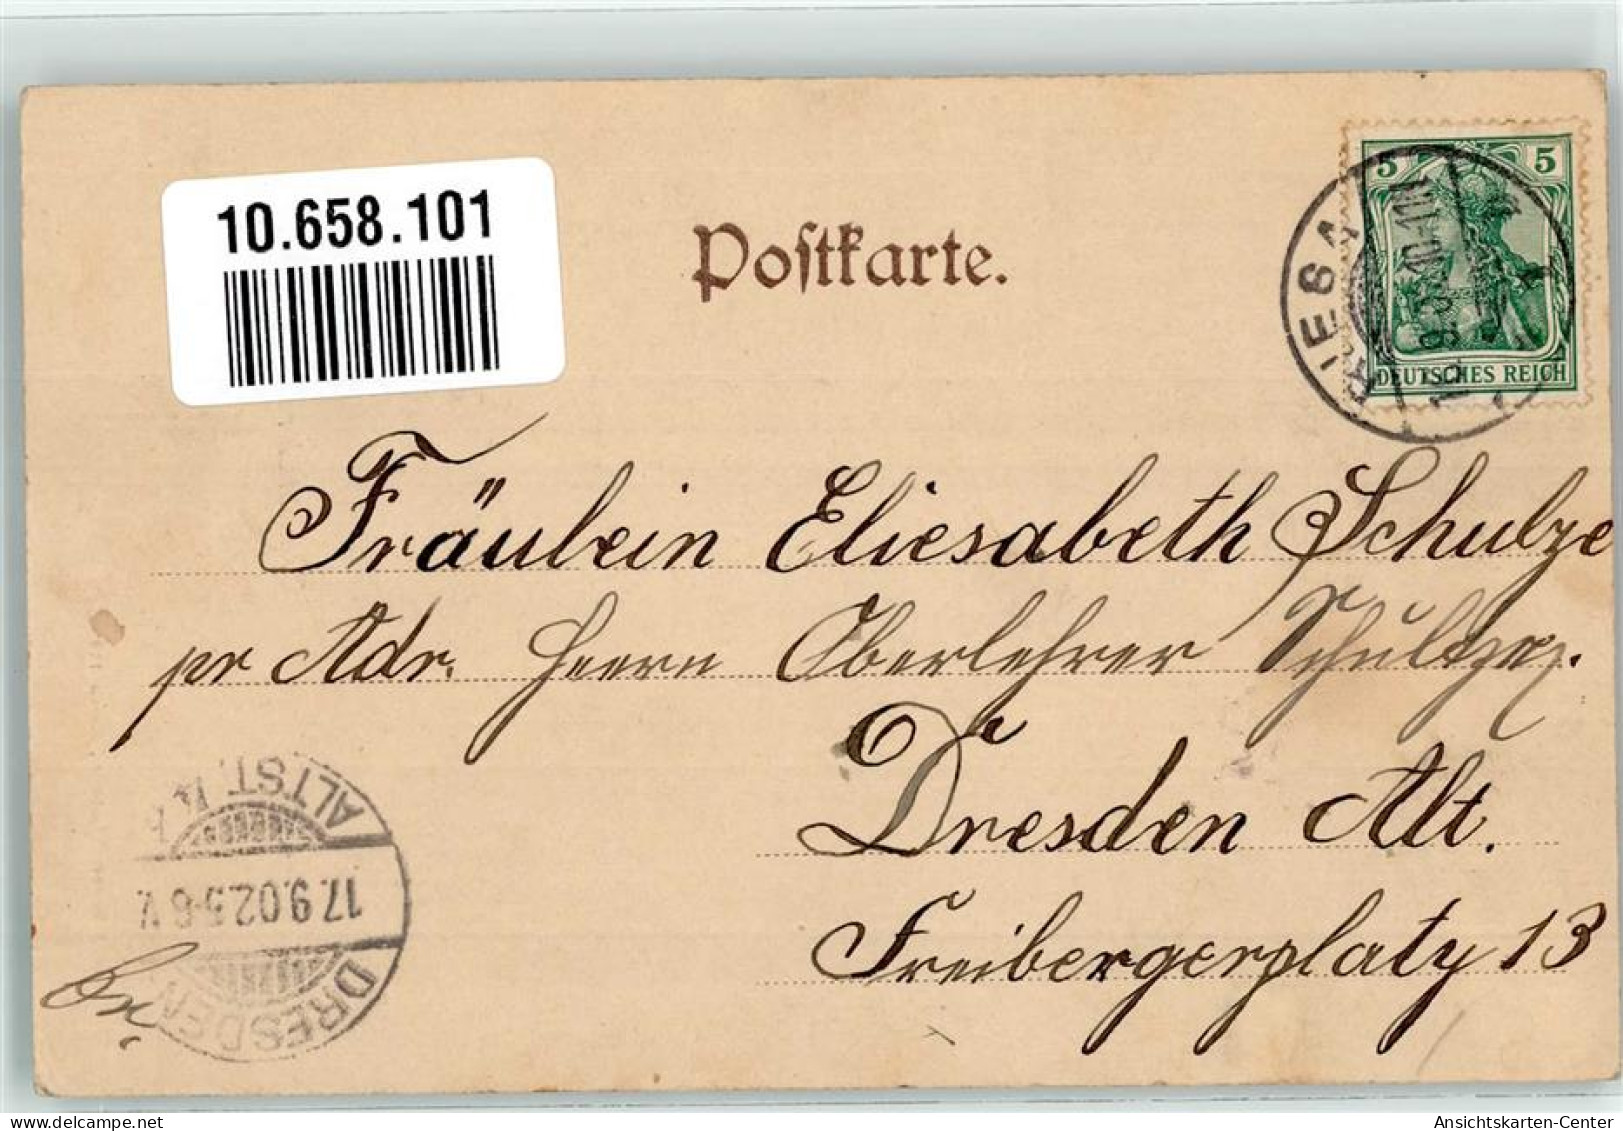 10.658.101
Postkarte.
5 5
DEUTSCHES REICH
RIESA
Fräulein Eliesabeth Schulze
pr Adr. Herrn Oberlehrer
Dresden Alt.
Freibergerplatz 13
ALTST.
17.9.02.5-6 V.
DRESDEN
Ansichtskarten-Center